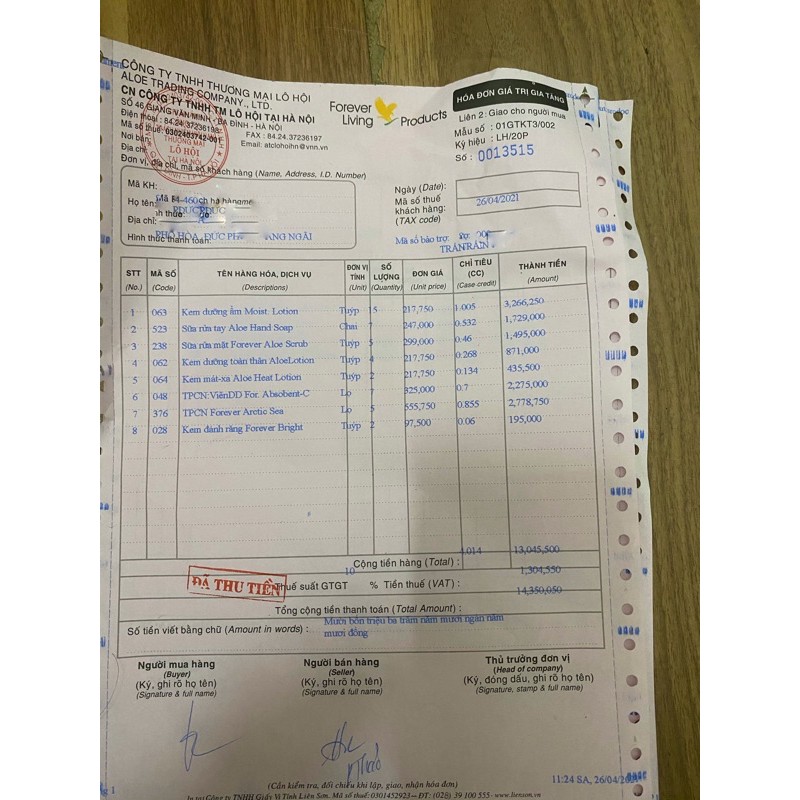 CÔNG TY TNHH THƯƠNG MẠI LÔ HỘI
ALOE TRADING COMPANY., LTD.
CN CÔNG TY TNHH TM LÔ HỘI TẠI HÀ NỘI
SỐ 46 GIANG VĂN MINH - BA ĐÌNH - HÀ NỘI
Điện thoại : 84.24.37236198 FAX : 84.24.37236197
Mã số thuế: 0302403742-001 Email: atclohoihn@vnn.vn
Nơi bán:
Địa chỉ:
THƯƠNG MẠI
LÔ HỘI
TẠI HÀ NỘI
Forever Living Products
HÓA ĐƠN GIÁ TRỊ GIA TĂNG
Liên 2: Giao cho người mua
Mẫu số : 01GTKT3/002
Ký hiệu : LH/20P
Số : 0013515
Đơn vị, địa chỉ, mã số khách hàng (Name, Address, I.D. Number)
Mã KH:
Họ tên:
Địa chỉ:
Hình thức thanh toán:
Ngày (Date):
Mã số thuế khách hàng: 26/04/2021
(TAX code)
Mã số bảo trợ:
STT MÃ SỐ TÊN HÀNG HÓA, DỊCH VỤ ĐƠN VỊ TÍNH SỐ LƯỢNG ĐƠN GIÁ CHỈ TIÊU (CC) THÀNH TIỀN
(No.) (Code) (Descriptions) (Unit) (Quantity) (Unit price) (Case credit) (Amount)
1 063 Kem dưỡng ẩm Moist. Lotion Tuýp 15 217,750 1.005 3,266,250
2 523 Sữa rửa tay Aloe Hand Soap Chai 7 247,000 0.532 1,729,000
3 238 Sữa rửa mặt Forever Aloe Scrub Tuýp 5 299,000 0.46 1,495,000
4 062 Kem dưỡng toàn thân AloeLotion Tuýp 4 217,750 0.268 871,000
5 064 Kem mát-xa Aloe Heat Lotion Tuýp 2 217,750 0.134 435,500
6 048 TPCN:ViênDD For. Absobent-C Lọ 7 325,000 0.7 2,275,000
7 376 TPCN Forever Arctic Sea Lọ 5 555,750 0.855 2,778,750
8 028 Kem đánh răng Forever Bright Tuýp 2 97,500 0.06 195,000
Cộng tiền hàng (Total) : 4.014 13,045,500
ĐÃ THU TIỀN
Thuế suất GTGT 10 % Tiền thuế (VAT) : 1,304,550
Tổng cộng tiền thanh toán (Total Amount) : 14,350,050
Số tiền viết bằng chữ (Amount in words) : Mười bốn triệu ba trăm năm mươi ngàn năm
mươi đồng
Người mua hàng Người bán hàng Thủ trưởng đơn vị
(Buyer) (Seller) (Head of company)
(Ký, ghi rõ họ tên) (Ký, ghi rõ họ tên) (Ký, đóng dấu, ghi rõ họ tên)
(Signature & full name) (Signature & full name) (Signature, stamp & full name)
(Cần kiểm tra, đối chiếu khi lập, giao, nhận hóa đơn)
In tại Công ty TNHH Giấy Vi Tính Liên Sơn. Mã số thuế: 0301452923 - ĐT: (028) 39 100 555 - www.lienson.vn
11:24 SA, 26/04/